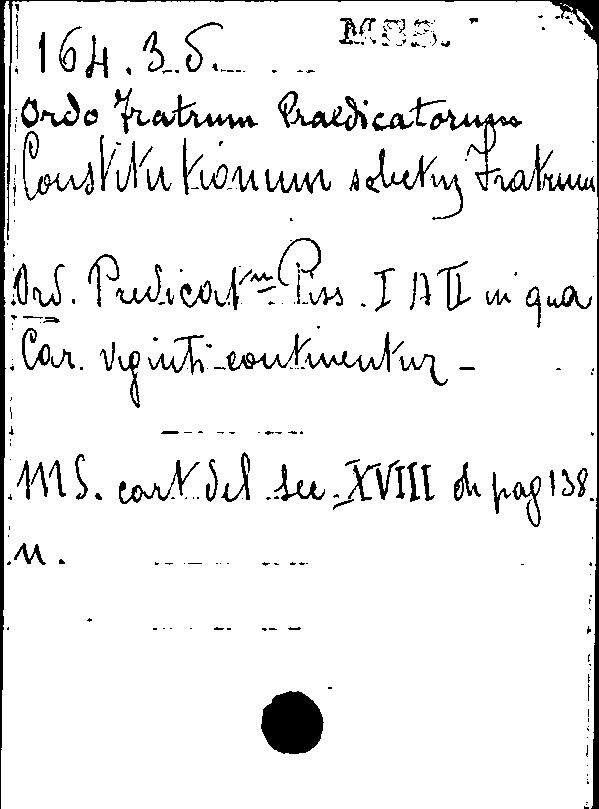 MSS.
164. 3. 5.
Ordo Fratrum Praedicatorum
Constitutionum Fratrum
Ord. Predicat.m Piss. I A II in qua
Car. viginti continentur –
MS. cart del sec. XVIII di pag 138.
n.